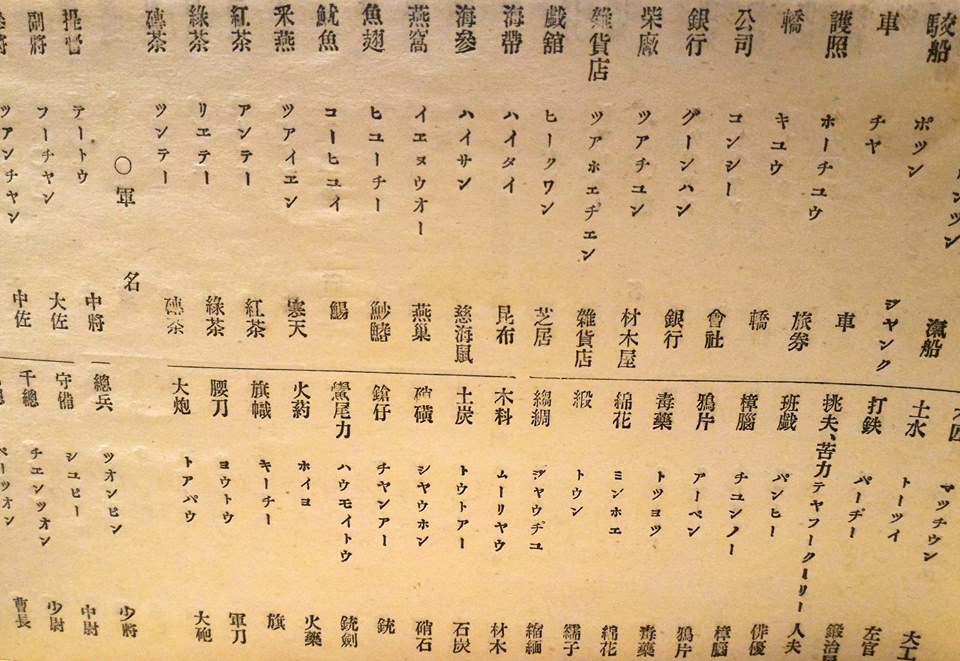 駁船 ポツン 滊船
車 チヤ ジヤンク
護照 ホーチユウ 車
轎 キユウ 旅劵
公司 コンシー 轎
銀行 グーンハン 會社
柴廠 ツアチユン 銀行
雜貨店 ツアホエチエン 材木屋
戲舘 ヒークワン 雜貨店
海帶 ハイタイ 芝居
海參 ハイサン 昆布
燕窩 イエヌウオー 慈海鼠
魚翅 ヒユーチー 燕巢
魷魚 コーヒユイ
釆燕 ツアイエン 鯣
紅茶 アンテー 寒天
綠茶 リエテー 紅茶
磚茶 ツンテー 綠茶
磚茶
○軍名
提督 テートウ 中將
副將 フーチヤン 大佐
ツアンチヤン 中佐
マツチウン 大工
土水 トーツイ 左官
打鉄 パーヂー
挑夫、苦力 テヤフークーリー 人夫
班戲 パンヒー 俳優
樟腦 チユンノー 樟腦
鴉片 アーペン 鴉片
毒藥 トツヨツ 毒藥
綿花 ミンホエ 綿花
緞 トウン 繻子
縐綢 ジヤウヂユ 縮緬
木料 ムーリヤウ 材木
土炭 トウトアー 石炭
硝磺 シヤウホン 硝石
鎗仔 チヤンアー 銃
鱟尾刀 ハウモイトウ 銃劍
火葯 ホイヨ 火藥
旗幟 キーチー 旗
腰刀 ヨウトウ 軍刀
大炮 トアパウ 大砲
總兵 ツオンピン 少將
守備 シユピー 中尉
千總 チエンツオン 少尉
曹長